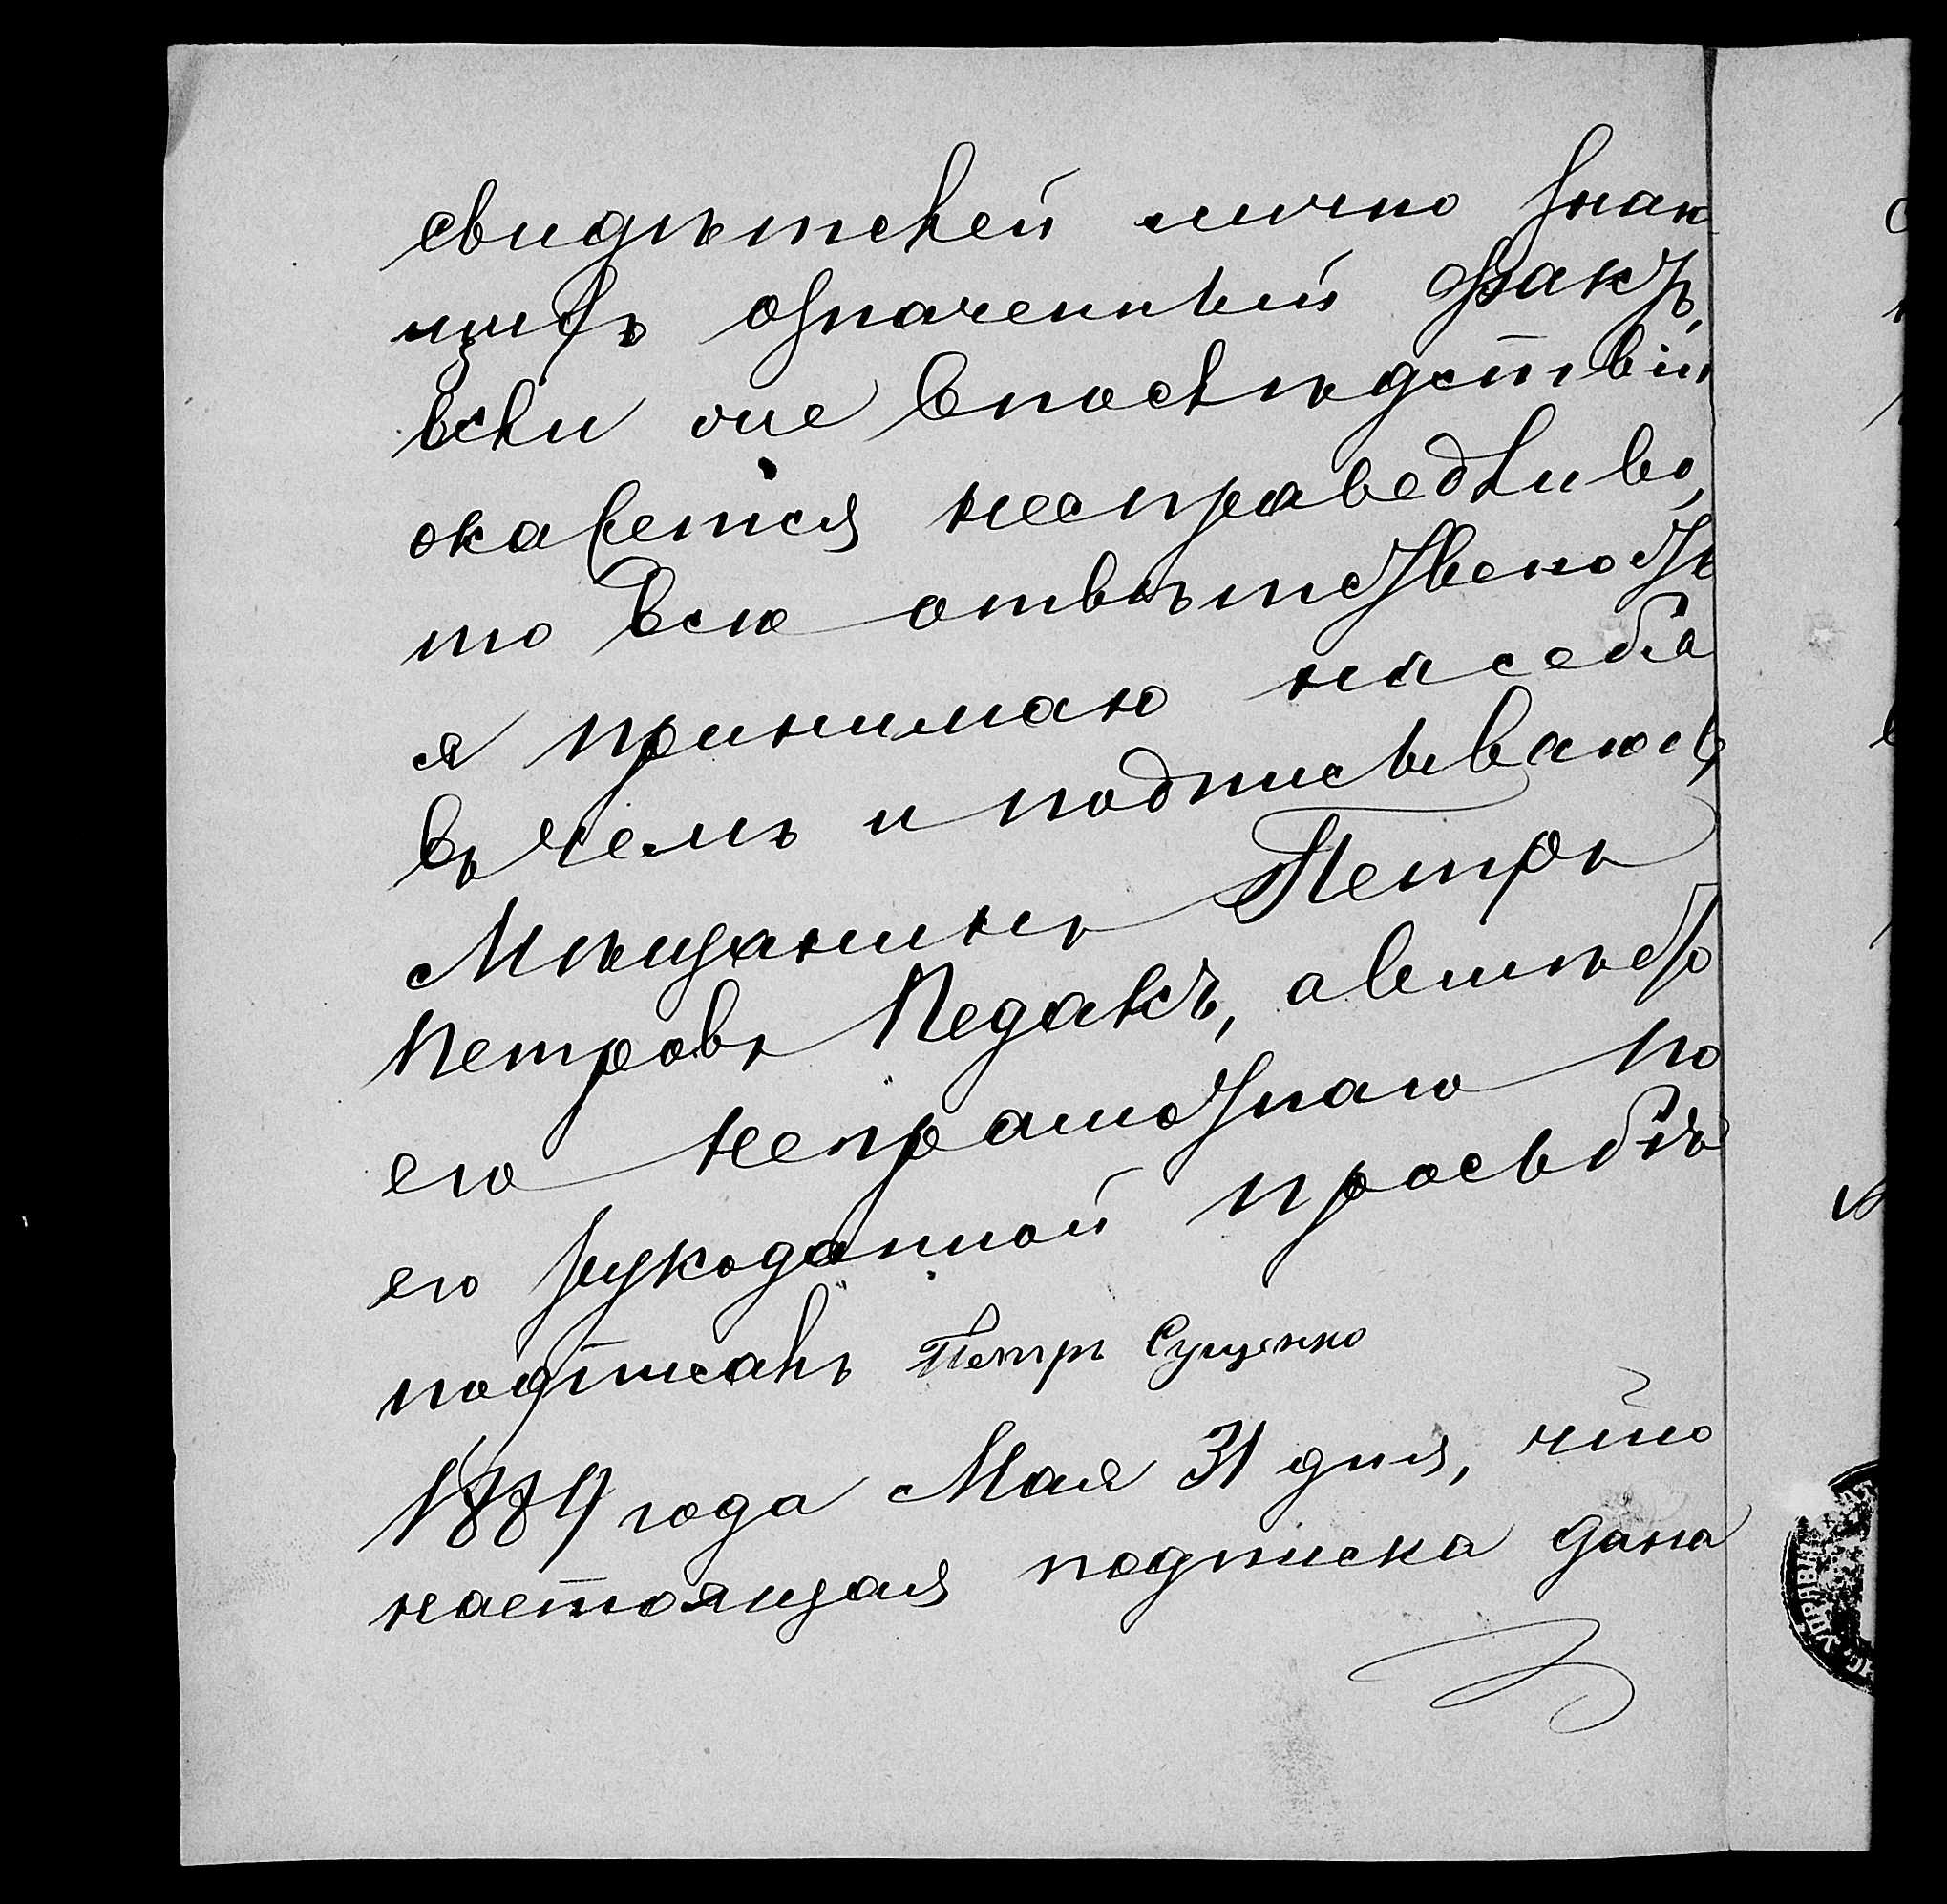 свидѣтелей лично знаю
щихъ означенный фактъ,
если оне впослѣдствіи
окажется несправедливо,
то всю отвѣтственость
я принимаю на себя
въ чемъ и подписываюсь,
Мѣщанинъ Петръ
Петровъ Педакъ, а вмѣсто
его неграмотнаго по
его рукоданной просьбѣ
подписалъ Петръ Сущенко
1889 года Мая 31 дня, что
настоящая подписка дана